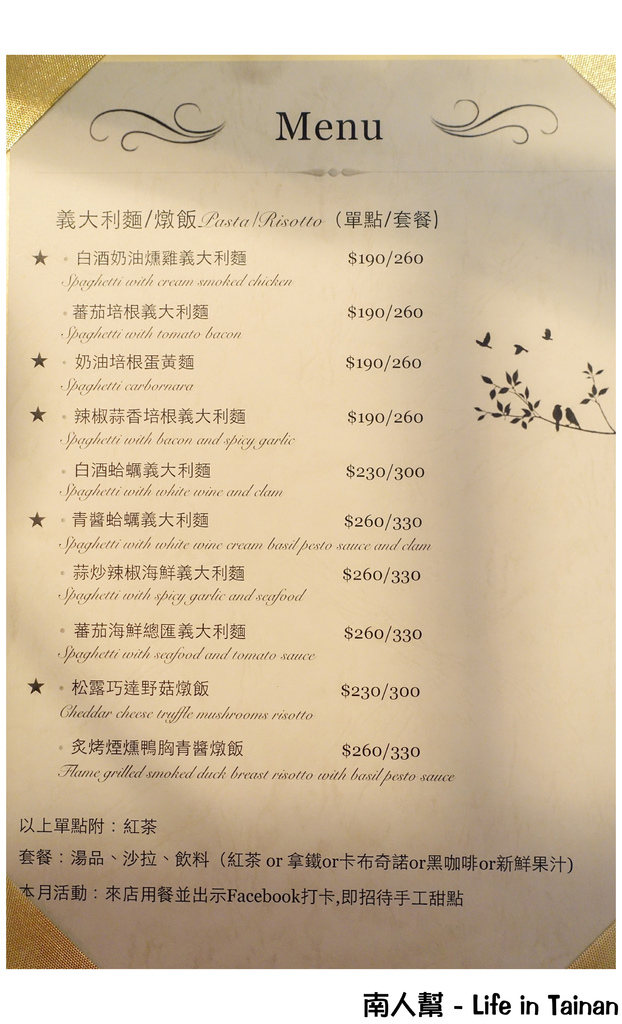 Menu
義大利麵/燉飯Pasta/Risotto (單點/套餐)
★ • 白酒奶油燻雞義大利麵 $190/260
Spaghetti with cream smoked chicken
• 蕃茄培根義大利麵 $190/260
Spaghetti with tomato bacon
★ • 奶油培根蛋黃麵 $190/260
Spaghetti carbornara
★ • 辣椒蒜香培根義大利麵 $190/260
Spaghetti with bacon and spicy garlic
• 白酒蛤蠣義大利麵 $230/300
Spaghetti with white wine and clam
★ • 青醬蛤蠣義大利麵 $260/330
Spaghetti with white wine cream basil pesto sauce and clam
• 蒜炒辣椒海鮮義大利麵 $260/330
Spaghetti with spicy garlic and seafood
• 蕃茄海鮮總匯義大利麵 $260/330
Spaghetti with seafood and tomato sauce
★ • 松露巧達野菇燉飯 $230/300
Cheddar cheese truffle mushrooms risotto
• 炙烤煙燻鴨胸青醬燉飯 $260/330
Flame grilled smoked duck breast risotto with basil pesto sauce
以上單點附：紅茶
套餐：湯品、沙拉、飲料（紅茶 or 拿鐵or卡布奇諾or黑咖啡or新鮮果汁)
本月活動：來店用餐並出示Facebook打卡,即招待手工甜點
南人幫 - Life in Tainan